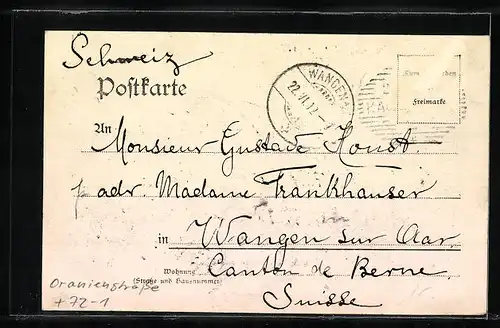 Schweiz
Postkarte
WANGEN A.
22.VI.12.-1
Freimarke
An Monsieur Gustave Honst.
p adr. Madame Frankhauser
in Wangen sur Aar
Wohnung
(Straße und Hausnummer)
Canton de Berne
Suisse
Oranienstraße
+72-1